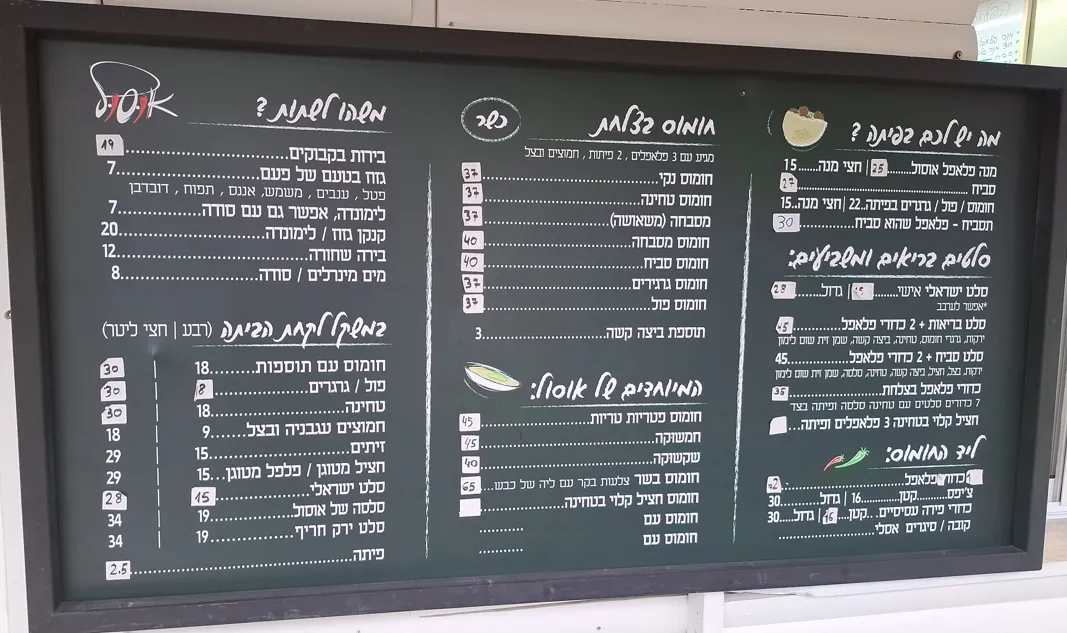 מה יש לכם בפיתה ?
מנה פלאפל אוסול.......25 | חצי מנה.....15
סביח ........................................27
חומוס / פול / גרגרים בפיתה..22 | חצי מנה..15
תסביח - פלאפל שהוא סביח................30
סלטים בריאים ומשביעים:
סלט ישראלי אישי......... | גדול..........28
*אפשר לערבב
סלט בריאות + 2 כדורי פלאפל..............45
ירקות, גרגרי חומוס, טחינה, ביצה קשה, שמן זית שום לימון
סלט סביח + 2 כדורי פלאפל..............45
ירקות, בצל, חציל, ביצה קשה, טחינה, סלסה, שמן זית שום לימון
כדורי פלאפל בצלחת......................35
7 כדורים סלטים עם טחינה סלסה ופיתה בצד
חציל קלוי בטחינה 3 פלאפלים ופיתה...
ליד החומוס:
כדורי פלאפל.........................
צ'יפס........קטן.........16 | גדול..........30
כדורי פירה עסיסיים...קטן....16 | גדול.....30
קובה / סיגרים אסלי.........................
כשר
חומוס בצלחת
מגיע עם 3 פלאפלים , 2 פיתות , חמוצים ובצל
חומוס נקי..............................37
חומוס טחינה...........................37
מסבחה (משאושה)......................37
חומוס מסבחה..........................40
חומוס סביח............................40
חומוס גרגירים..........................37
חומוס פול..............................37
תוספת ביצה קשה......................3
המיוחדים של אוסול:
חומוס פטריות טריות..................45
חמשוקה...............................45
שקשוקה..............................40
חומוס בשר צלעות בקר עם ליה של כבש...65
חומוס חציל קלוי בטחינה..............
חומוס עם ............
חומוס עם ............
אוסול
משהו לשתות ?
בירות בקבוקים.........................19
גזוז בטעם של פעם.......................7
פטל , ענבים , משמש, אננס , תפוח , דובדבן
לימונדה, אפשר גם עם סודה..............7
קנקן גזוז / לימונדה.......................20
בירה שחורה..............................12
מים מינרלים / סודה......................8
במשקל לקחת הביתה (רבע | חצי ליטר)
חומוס עם תוספות...........18 30
פול / גרגרים.................8 30
טחינה......................18 30
חמוצים עגבניה ובצל.......9 18
זיתים.......................15 29
חציל מטוגן / פלפל מטוגן..15 29
סלט ישראלי................15 28
סלסה של אוסול.............19 34
סלט ירק חריף...............19 34
פיתה.........................................2.5